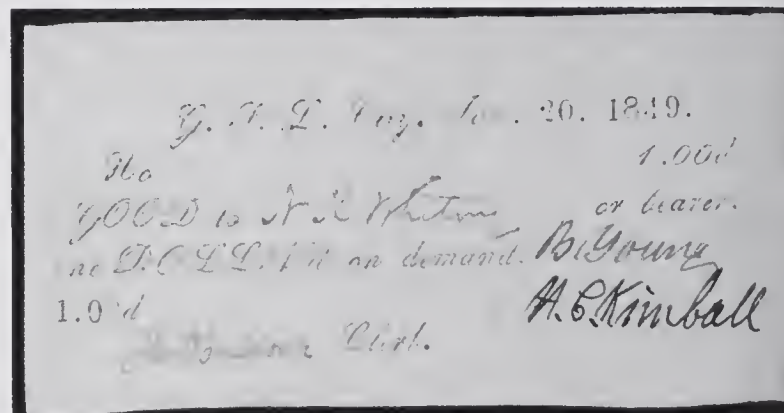 G. S. L. City. Jan. 20. 1849.
No 1.00d
GOOD to N K Whitney or bearer.
DOLLAR on demand. B. Young
1.0 d H. C. Kimball
Clerk.